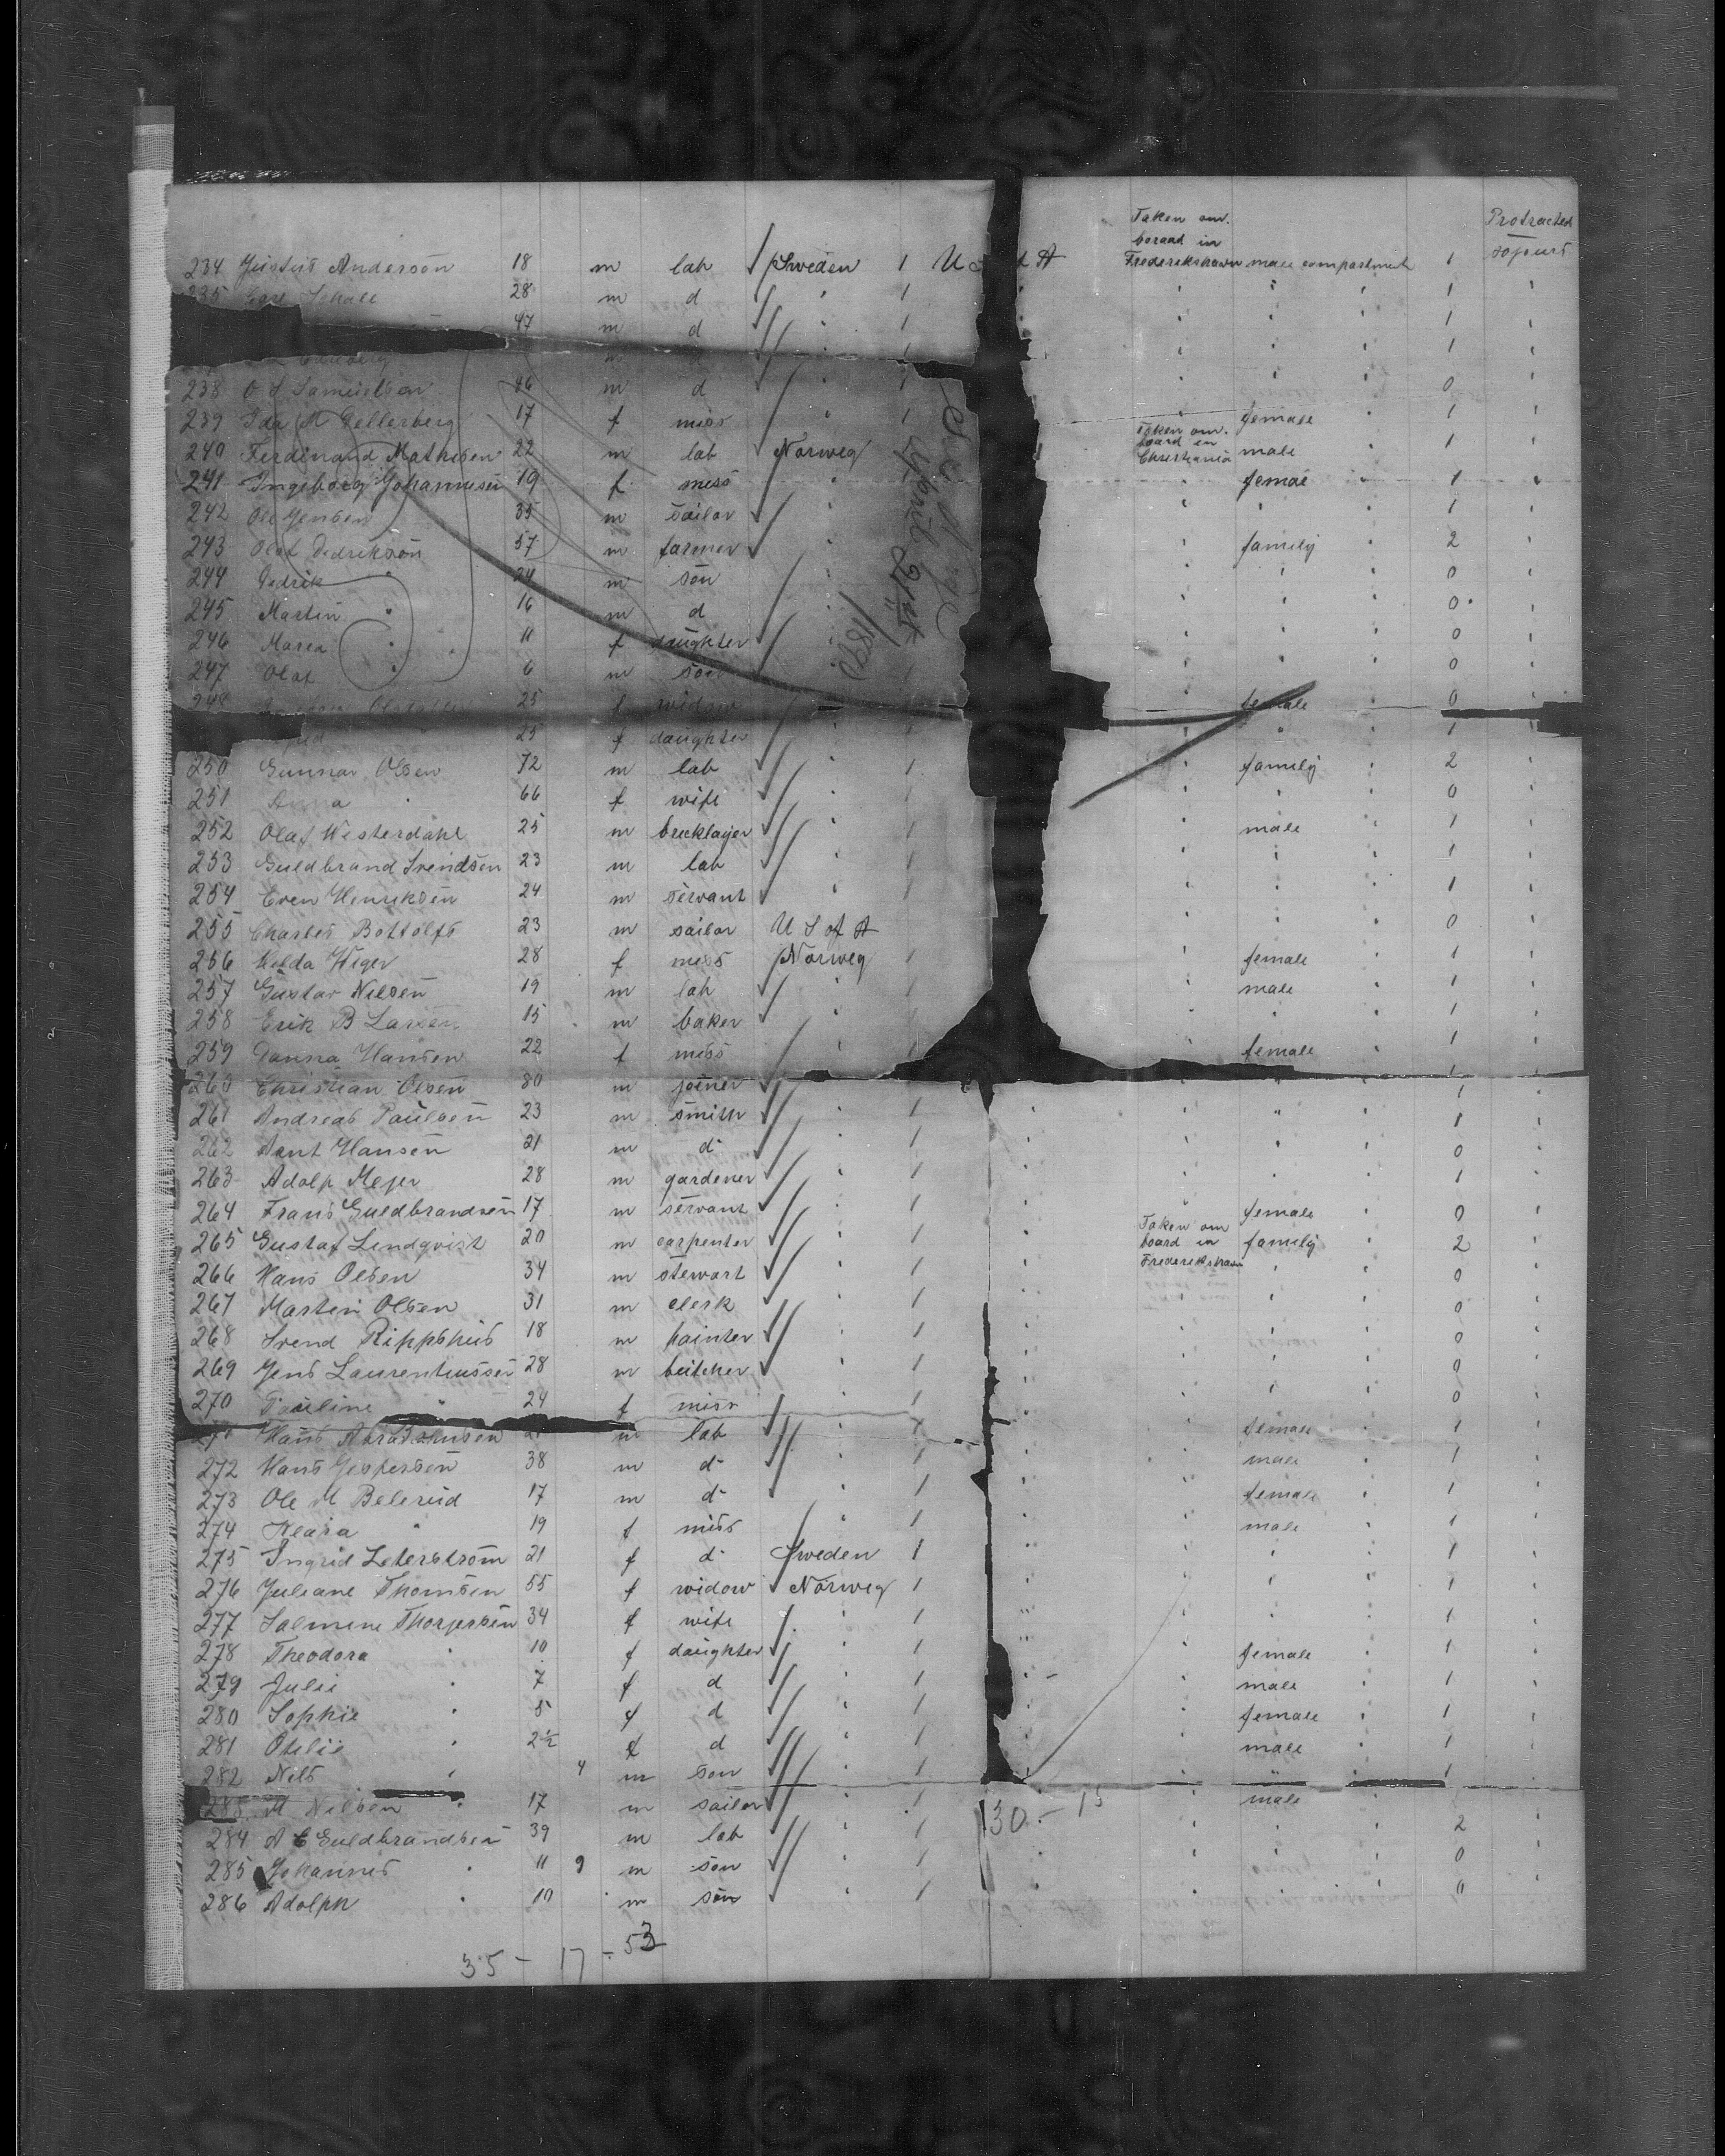 Taken on. Protracted
board in sojourn
234 Justus Anderson 18 m lab Sweden 1 U A Frederikshavn male compartment 1
235 28 m d " 1 " " " 1 "
47 m d " 1 " " " 1 "
m d 1 " " 1 "
238 O S Samuelson 46 m d " 1 " " " 0 "
239 Ida M Gellerberg 17 f miss " 1 " female " 1 "
Taken on. board in Christiania
240 Ferdinand Mathisen 22 m lab Norweg male " 1 "
241 Ingeborg Johannesen 19 f miss " femae " 1 "
242 Ole Jensen 35 m sailor " " " " 1 "
243 Olaf Dedrikson 57 m farmer " " family " 2 "
244 Dedrik " 24 m son " " " " 0 "
245 Martin " 16 m d " " " " 0 "
246 Maria " 11 f daughter " " " " 0 "
247 Olaf " 6 m son " " " 0 "
248 25 f widow " female " 0 "
" 25 f daughter " " " " 1 "
250 Gunnar Olsen 72 m lab " 1 " family " 2 "
251 Anna " 66 f wife " 1 " " " 0 "
252 Olaf Westerdahl 25 m bricklayer " 1 " male " 1 "
253 Guldbrand Svendsen 23 m lab " 1 " " " 1 "
254 Even Henriksen 24 m servant " 1 " " " 1 "
255 Charles Bottolfs 23 m sailor U S of A " " " 0 "
256 Hilda Wiger 28 f miss Norweg 1 " female " 1 "
257 Gustav Nilsen 19 m lab " 1 " male " 1 "
258 Erik B Larsen 15 m baker " 1 " " " 1 "
259 Hansen 22 f miss " 1 " female " 1 "
260 Christian Olsen 80 m joiner " " " 1 "
261 Andreas Paulsen 23 m smith " 1 " " " " 1 "
262 Hansen 21 m d " 1 " " " " 0 "
263 Adolf Mejer 28 m gardener " 1 " " " " 1 "
264 Frans Guldbrandsen 17 m servant " 1 " " female " 0 "
Taken on board in Frederikshavn
265 Gustaf Lindqvist 20 m carpenter " 1 " family " 2 "
266 Hans Olsen 34 m stewart " 1 " " " 0 "
267 Martin Olsen 31 m clerk " 1 " " " " 0 "
268 Svend 18 m painter " 1 " " " " 0 "
269 Jens Laurentiussen 28 m butcher " 1 " " " " 0 "
270 Pauline " 24 f miss " 1 " " " " 0 "
271 Hans 21 m lab " 1 " " female " 1 "
272 Hans Jespersen 38 m d " 1 " " male " 1 "
273 Ole M Belerud 17 m d " 1 " " female " 1 "
274 Klara " 19 f miss " 1 " " male " 1 "
275 Ingrid Leterström 21 f d Sweden 1 " " " " 1 "
276 Juliane Thomsen 55 f widow Norweg 1 " " " " 1 "
277 Salmine Thorjersen 34 f wife " 1 " " " " 1 "
278 Theodora " 10 f daughter " 1 " " female " 1 "
279 Julie " 7 f d " 1 " " male " 1 "
280 Sophie " 5 f d " 1 " " female " 1 "
281 Otelie " 2½ f d " 1 " " male " 1 "
282 Nils " 4 m son " 1 " " " 1 "
283 M Nilsen " 17 m sailor " 1 " male
284 A C Guldbrandsen 39 m lab " 1 " " " 2 "
285 Johannes " 11 9 m son " 1 " " " 0 "
286 Adolph " 10 m son " 1 " " " " 0 "
130 - 15
35 - 17 - 53
April 21st
1881